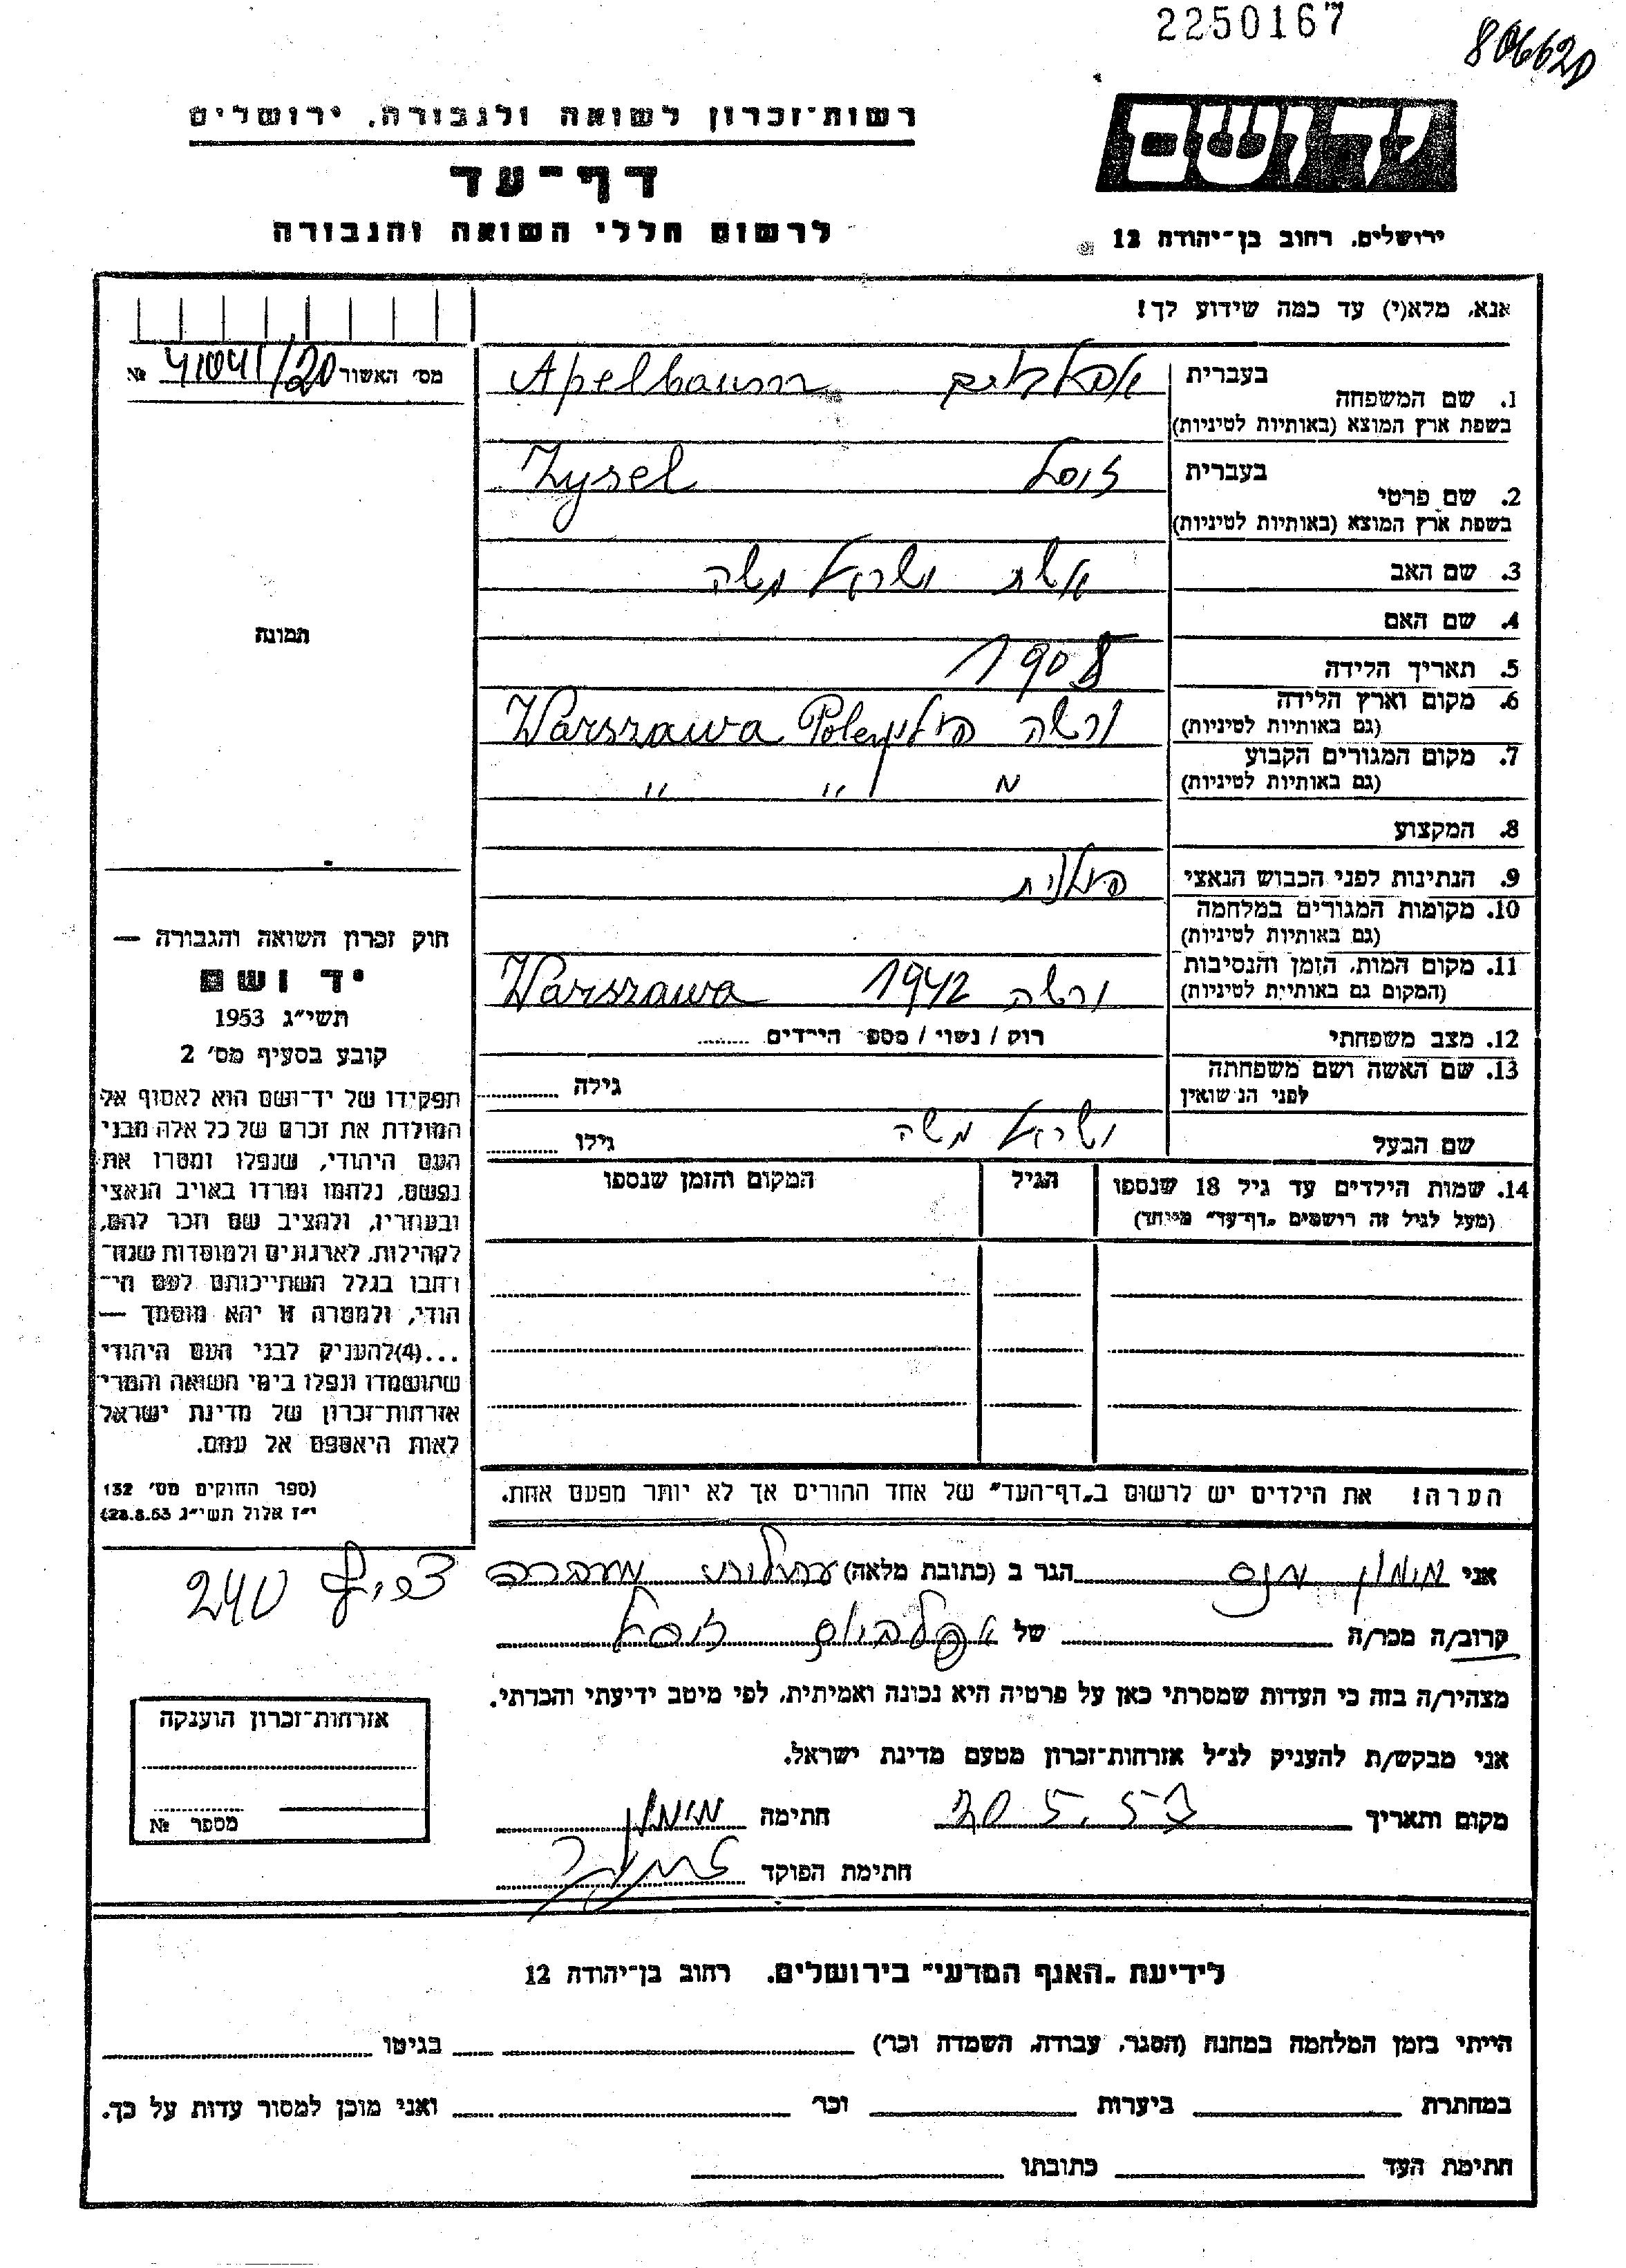 2250167
806620
רשות־זכרון לשואה ולגבורה, ירושלים
יד ושם
דף־עד
לרשום חללי השואה והגבורה
ירושלים, רחוב בן־יהודה 12
אנא, מלא(י) עד כמה שידוע לך!
מס׳ האשור 41041/20 №
1. שם המשפחה בעברית אפאלבוים Apelbaum
בשפת ארץ המוצא (באותיות לטיניות)
2. שם פרטי בעברית זוסל Zysel
בשפת ארץ המוצא (באותיות לטיניות)
3. שם האב אשת ישראל משה
4. שם האם
תמונה
5. תאריך הלידה 1908
6. מקום וארץ הלידה ורשה פולין Warszawa Polen
(גם באותיות לטיניות)
7. מקום המגורים הקבוע
(גם באותיות לטיניות) " " "
8. המקצוע
9. הנתינות לפני הכבוש הנאצי פולנית
10. מקומות המגורים במלחמה
(גם באותיות לטיניות)
11. מקום המות, הזמן והנסיבות ורשה 1942 Warszawa
(המקום גם באותיות לטיניות)
12. מצב משפחתי רוק / נשוי / מספר הילדים ........
13. שם האשה ושם משפחתה
לפני הנישואין גילה
שם הבעל ישראל משה גילו
14. שמות הילדים עד גיל 18 שנספו הגיל המקום והזמן שנספו
(מעל לגיל זה רושמים „דף־עד” מיוחד)
חוק זכרון השואה והגבורה —
יד ושם
תשי״ג 1953
קובע בסעיף מס׳ 2
תפקידו של יד־ושם הוא לאסוף אל
המולדת את זכרם של כל אלה מבני
העם היהודי, שנפלו ומסרו את
נפשם, נלחמו ומרדו באויב הנאצי
ובעוזריו, ולהציב שם וזכר להם,
לקהילות, לארגונים ולמוסדות שנח־
רבו בגלל השתייכותם לעם הי־
הודי, ולמטרה זו יהא מוסמך —
...(4)להעניק לבני העם היהודי
שהושמדו ונפלו בימי השואה והמרי
אזרחות־זכרון של מדינת ישראל
לאות היאספם אל עמם.
(ספר החוקים מס׳ 132
י״ז אלול תשי״ג 28.8.53)
הערה! את הילדים יש לרשום ב„דף־העד” של אחד ההורים אך לא יותר מפעם אחת.
אני מימון הגר ב (כתובת מלאה) מעברה 240
קרוב/ה מכר/ה של אפלבוים זוסל
מצהיר/ה בזה כי העדות שמסרתי כאן על פרטיה היא נכונה ואמיתית, לפי מיטב ידיעתי והכרתי.
אני מבקש/ת להעניק לנ״ל אזרחות־זכרון מטעם מדינת ישראל.
מקום ותאריך חתימה מימון
חתימת הפוקד
אזרחות־זכרון הוענקה
מספר №
לידיעת „האגף המדעי” בירושלים. רחוב בן־יהודה 12
הייתי בזמן המלחמה במחנה (הסגר, עבודה, השמדה וכר׳) בגיטו
במחתרת ביערות וכר׳ ואני מוכן למסור עדות על כך.
חתימת העד כתובתו